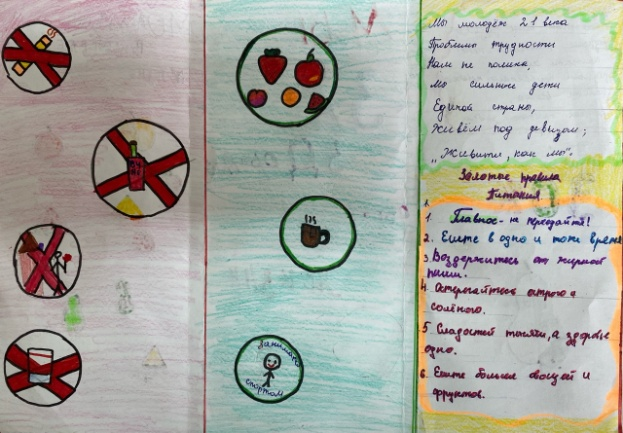 Занимайся
спортом
Мы молодёж 21 века
Проблемы трудности
Нам не помеха,
Мы сильные дети
Единой страны,
Живём под девизом;
„Живите, как мы".
Золотые правила
Питания
1. Главное - не переедайте!
2. Ешьте в одно и тоже время
3. Воздержитесь от жирной
пищи.
4. Остерегайтесь острого и
солёного.
5. Сладостей тысячи, а здоровье
одно.
6. Ешьте больше овощей и
фруктов.